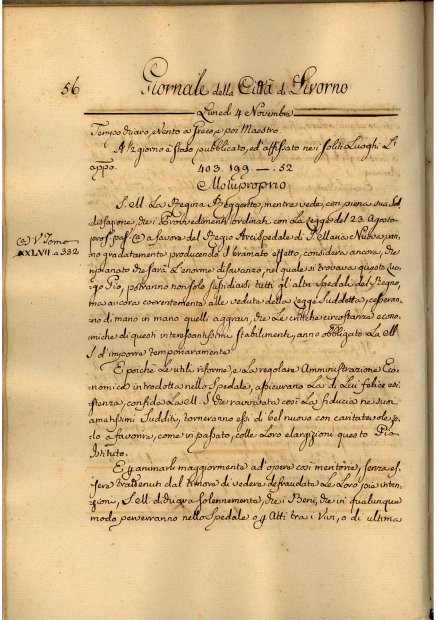 56 Giornale della Città di Livorno
Lunedì 4 Novembre
Tempo vario, Vento a Greco, e poi Maestro.
A 12 giorno è stato pubblicato, ed affissato nei soliti Luoghi L'
appo.
403. 199 — . 52
Motuproprio
S. M. La Regina Reggente, mentre vede, con piena sua Sod-
disfazione, che i Provvedimenti ordinati con La Legge del 23. Agosto
pros. pas. (a) a favore del Regio Arcispedale di S. Maria Nuova, van-
no gradatamente producendo il bramato effetto, considera ancora, che
ripianato che sarà L'enorme disavanzo, nel quale si trovava questo Luo-
go Pio, potranno non solo sussidiarsi tutti gli altri spedali del Regno,
ma ancora coerentemente alle vedute della Legge Suddetta, cesseran-
no di mano in mano quelli aggravi, che Le critiche circostanze econo-
miche di questi interessantissimi stabilimenti, anno obbligato La M.
S. d'imporre temporariamente.
E poiché Le utili riforme, e La regolare Amministrazione Eco-
nomica introdotta nello Spedale, assicurano La di Lui felice esi-
stenza, confida La M. S. che ravvivata così La fiducia nei suoi
amatissimi Sudditi, torneranno essi di bel nuovo con caritatevole
a favorire, come in passato, colle Loro elargizioni questo Pio
Istituto.
E p animarli maggiormente ad opere così meritorie, senza es-
sere trattenuti dal timore di vedere defraudate Le Loro pie inten-
zioni, S. M. dichiara solennemente, che i Beni, che in qualunque
modo perverranno nello Spedale o p Atti tra i Vivi, o di ultima
(a) V. Tomo
XLVII a 332